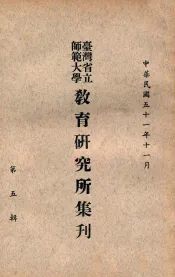 中華民國五十一年十一月
臺灣省立
師範大學
教育研究所集刊
第五輯